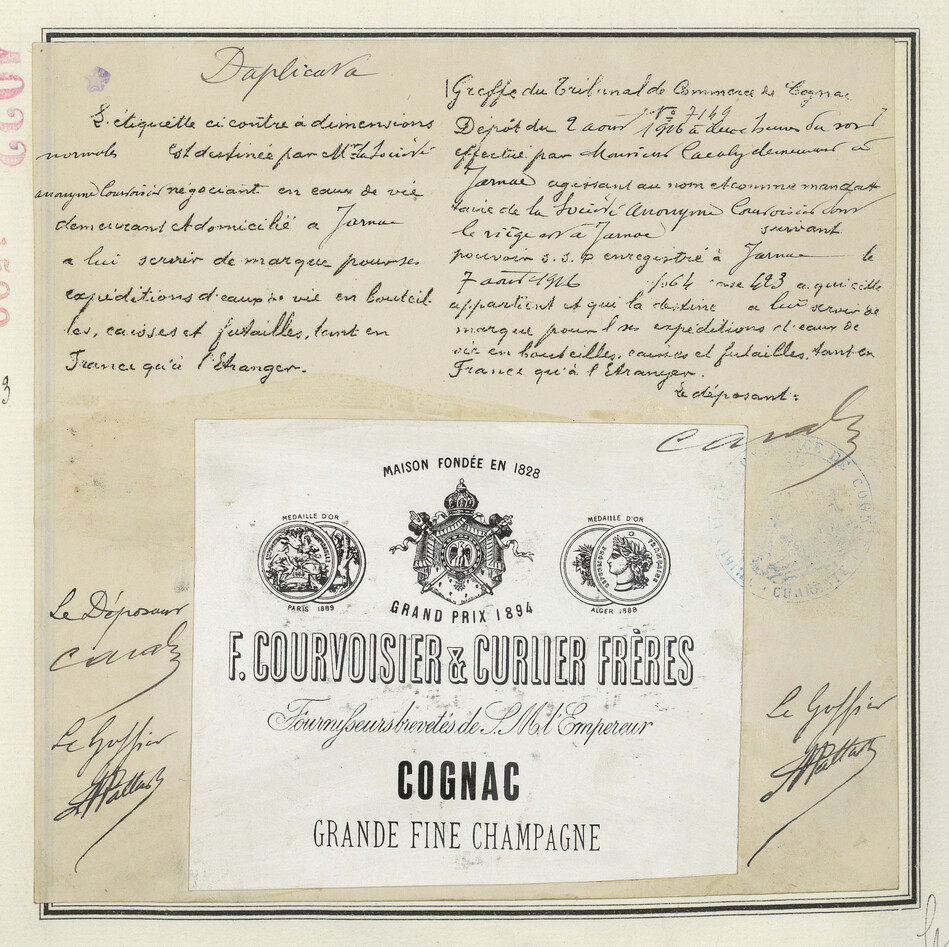 Duplicata
L'étiquette ci contre à dimensions
normales est destinée par Mr la Société
anonyme Courvoisier négociant en eaux de vie
demeurant et domicilié a Jarnac
a lui servir de marque pour ses
expéditions d'eaux de vie en bouteil
les, caisses et futailles, tant en
France qu'à l'Etranger.
Greffe du Tribunal de Commerce de Cognac
No 7149
Dépôt du 2 aout 1916 à deux heures du soir
effectué par Monsieur demeurant à
Jarnac agissant au nom et comme mandat
taire de la Société Anonyme Courvoisier dont
le siège est à Jarnac suivant
pouvoir s.s.p enregistré à Jarnac le
7 août 1916 fo 64 case 423 a qui elle
appartient et qui la destine a lui servir de
marque pour ses expéditions d'eaux de
vie en bouteilles, caisses et futailles, tant en
France qu'à l'Etranger.
Le déposant:
MAISON FONDÉE EN 1828
MEDAILLE D'OR
MEDAILLE D'OR
PARIS 1889
GRAND PRIX 1894
ALGER 1889
F. COURVOISIER & CURLIER FRÈRES
Fournisseurs brevetés de S.M. l'Empereur
COGNAC
GRANDE FINE CHAMPAGNE
Le Déposant
Le Greffier
Le Greffier